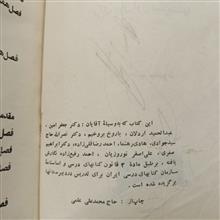 فصل
فصل ه
فصل ها
مقدمه
فصل
فصل
فصل
این کتاب که بوسیلهٔ آقایان : دکتر جعفر امین ،
عبدالحمید اردلان ، باروخ بروخیم ، دکتر نصرالله حاج
سیدجوادی ، هادی رهنما ، احمد رضاقلی زاده ، دکتر ابراهیم
صفری ، علی اصغر نوروزیان ، احمد رفیع زاده نگارش
یافته ، برطبق مادهٔ ۳ قانون کتابهای درسی و اساسنامهٔ
سازمان کتابهای درسی ایران برای تدریس در دبیرستانها
برگزیده شده است .
چاپ از : حاج محمدعلی علمی